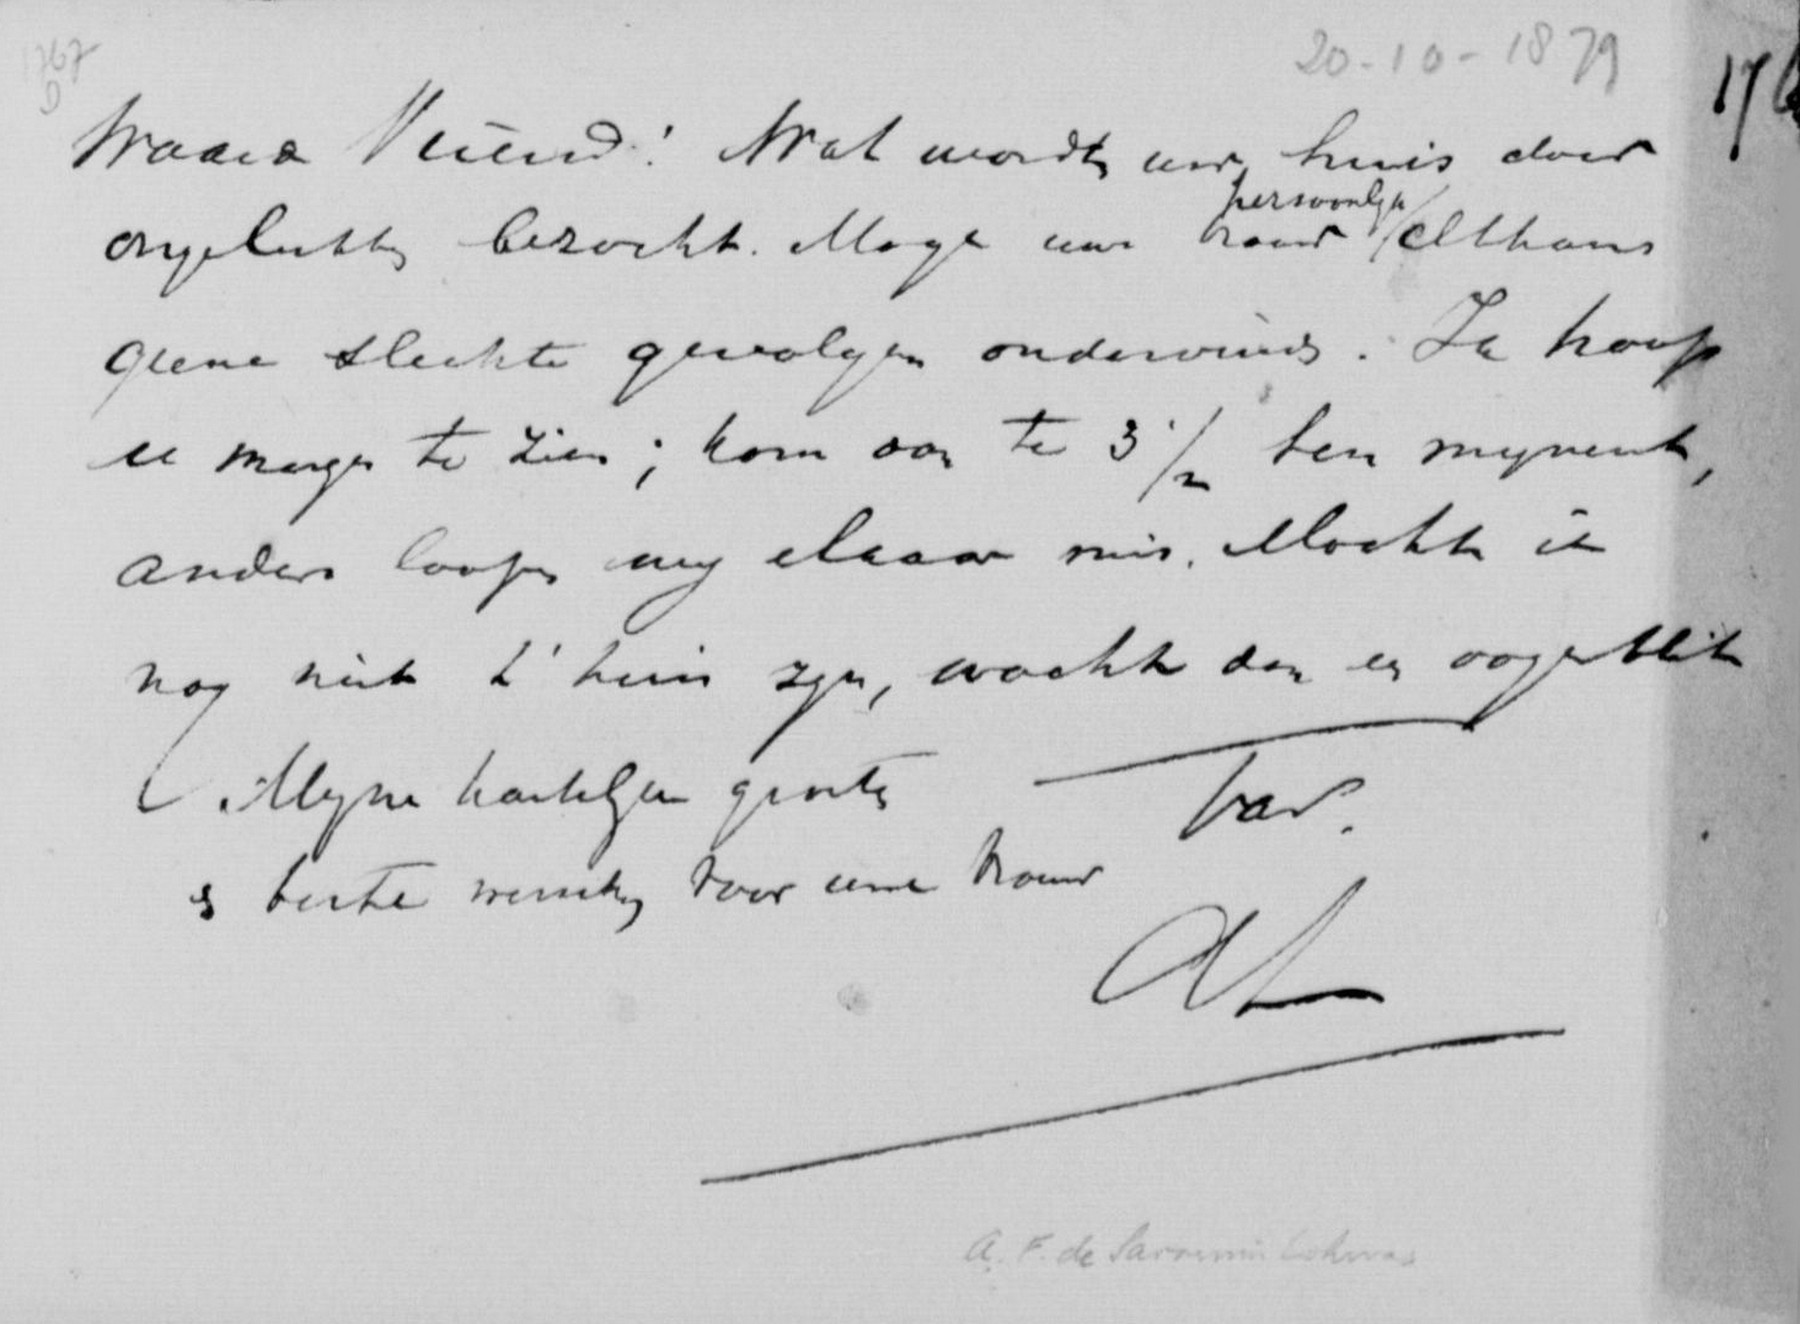 1767
D
20-10-1879
17
Waarde Vriend! Wat wordt uw huis door
ongelukken bezocht. Moge uw vrouw persoonlijk althans
geene slechte gevolgen ondervinden. Ik hoop
u morgen te zien; kom dan te 3 1/2 ten mynent,
anders loopen wij elkaar mis. Mocht ik
nog niet t'huis zyn, wacht dan een oogenblik
Myne hartelyke groete
en beste wenschen voor uwe vrouw
t.av.
AL
A. F. de Savornin Lohman